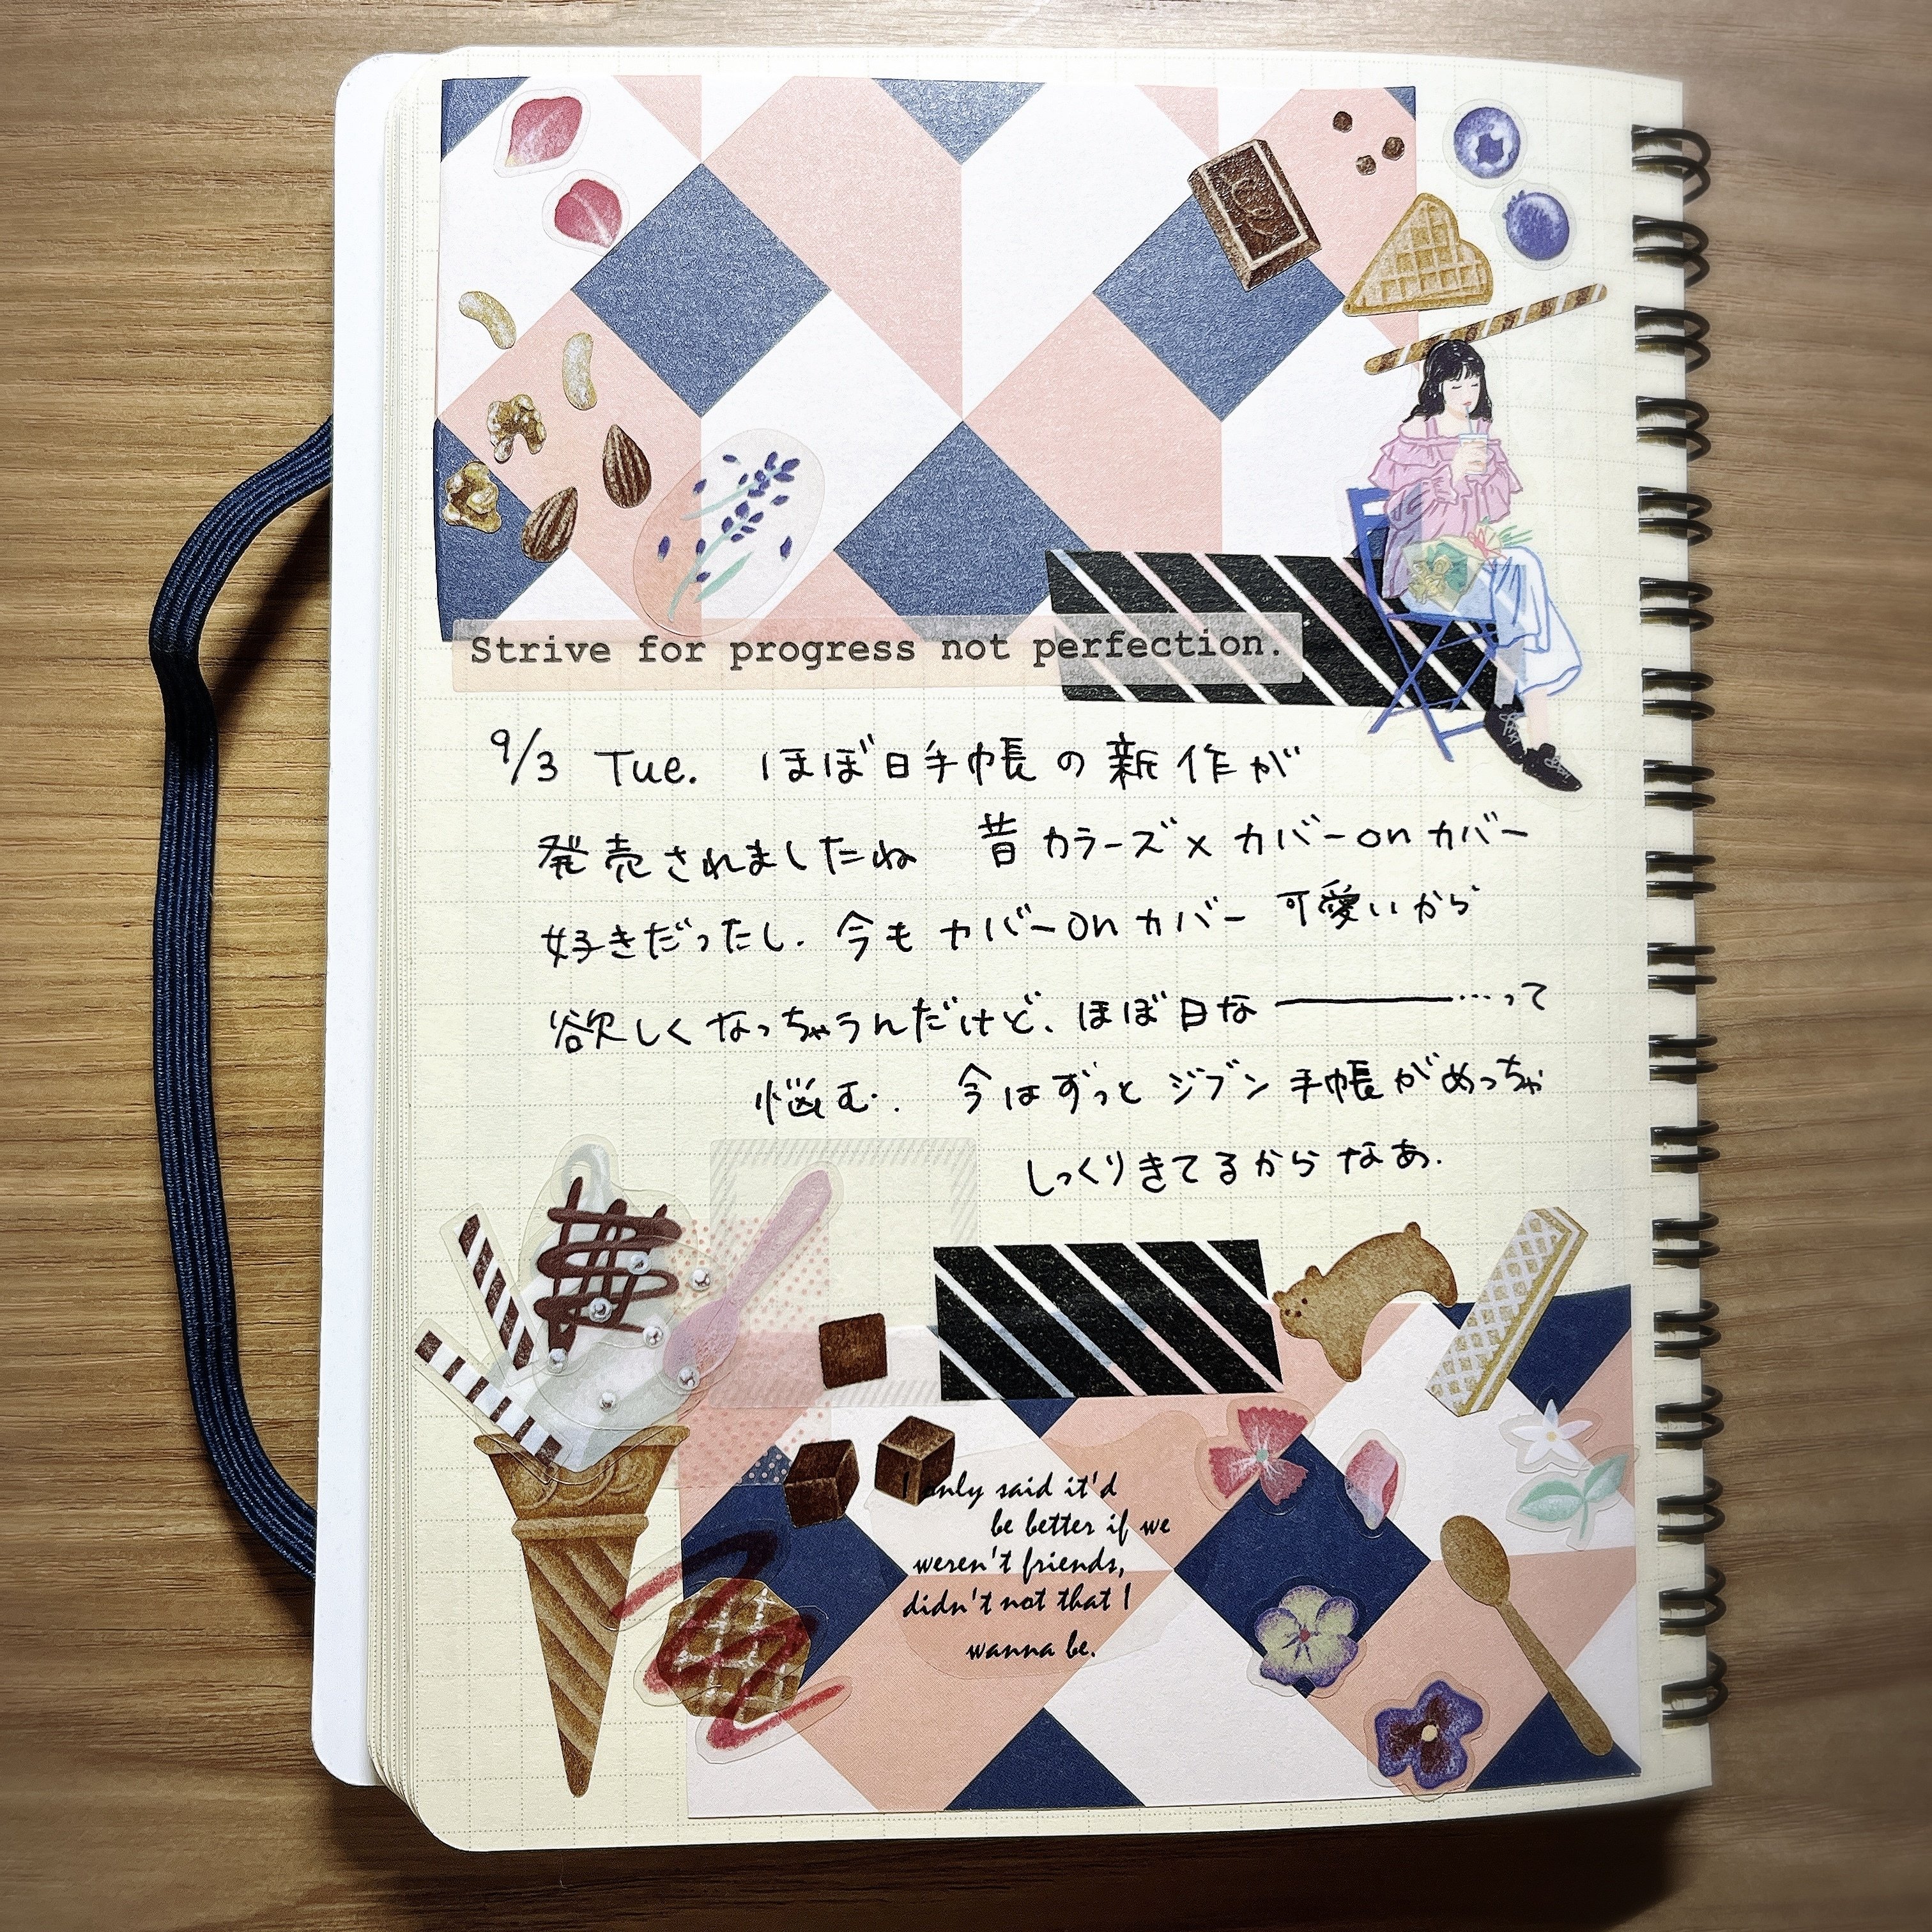 Strive for progress not perfection.
9/3 Tue. ほぼ日手帳の新作が
発売されましたね 昔カラーズ×カバーonカバー
好きだったし. 今もカバーonカバー可愛いから
欲しくなっちゃうんだけど、ほぼ日な―――…って
悩む. 今はずっとジブン手帳がめっちゃ
しっくりきてるからなあ.
I only said it'd
be better if we
weren't friends,
didn't not that I
wanna be.